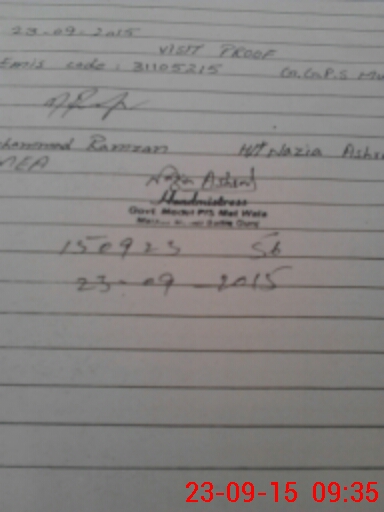 23-09-2015
VISIT PROOF
Emis code : 31105215 G.G.P.S
Ramzan H/t Nazia
MEA
Nazia Ashraf
Headmistress
Govt. Model P/S Mat Wala
150923 56
23-09-2015
23-09-15 09:35